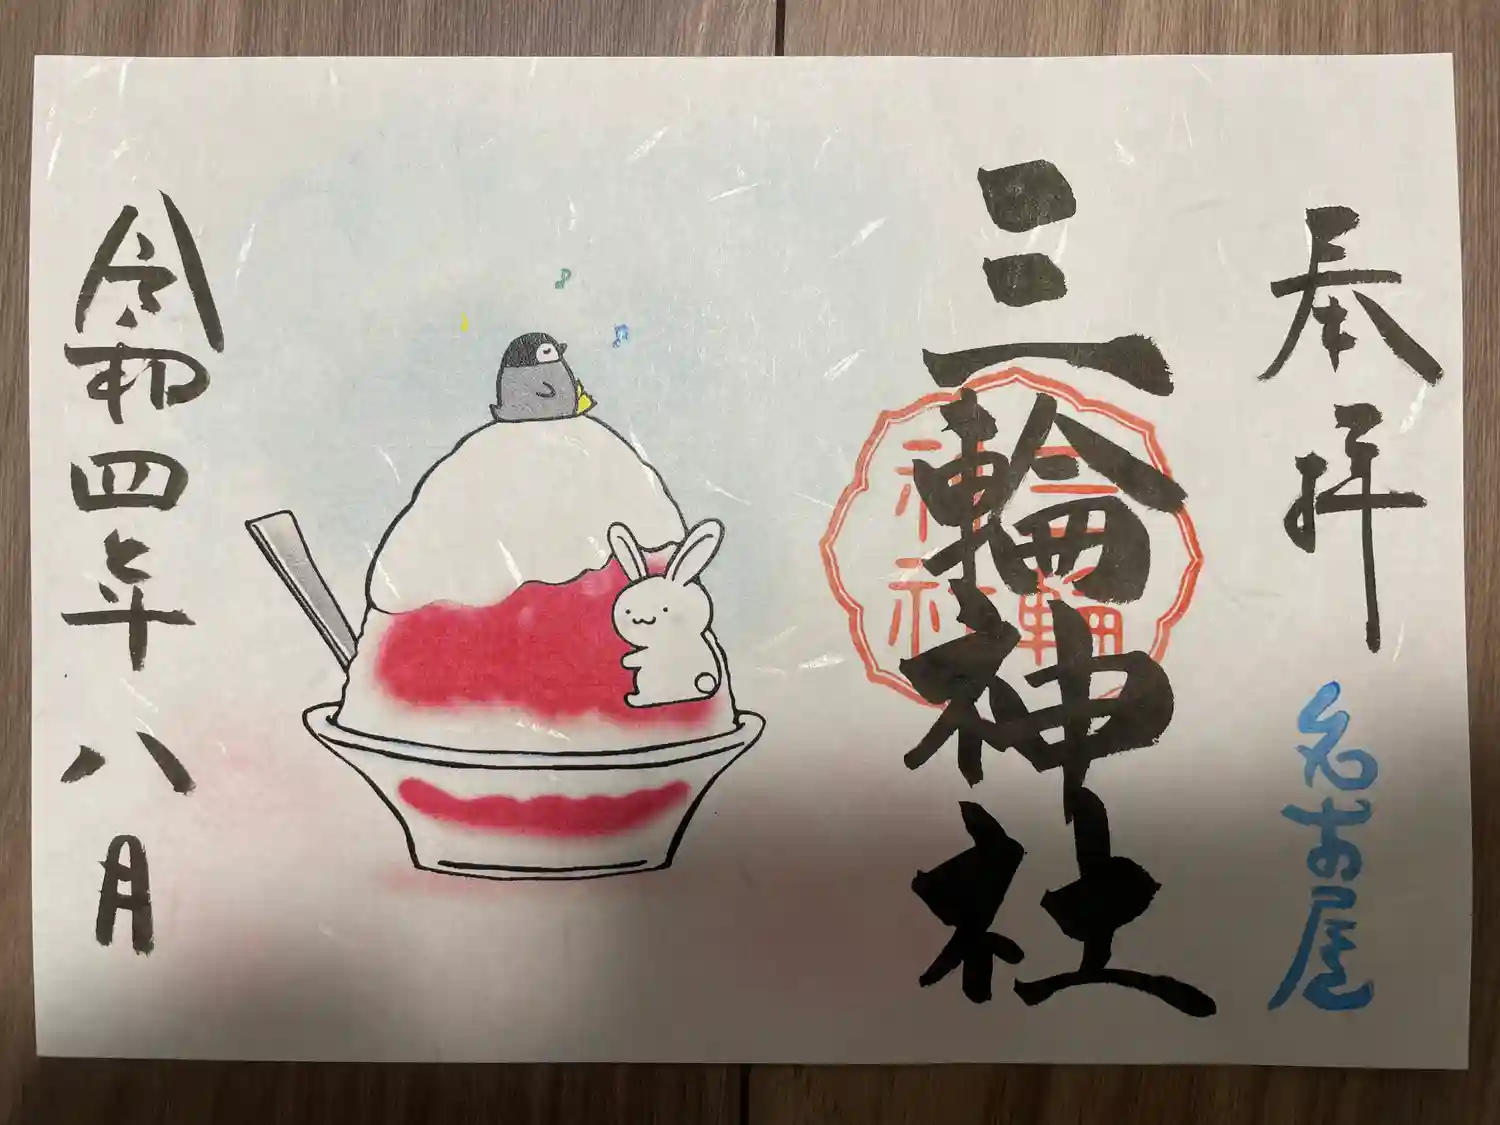 奉拝
名古屋
三輪神社
三輪
神社
令和四年八月